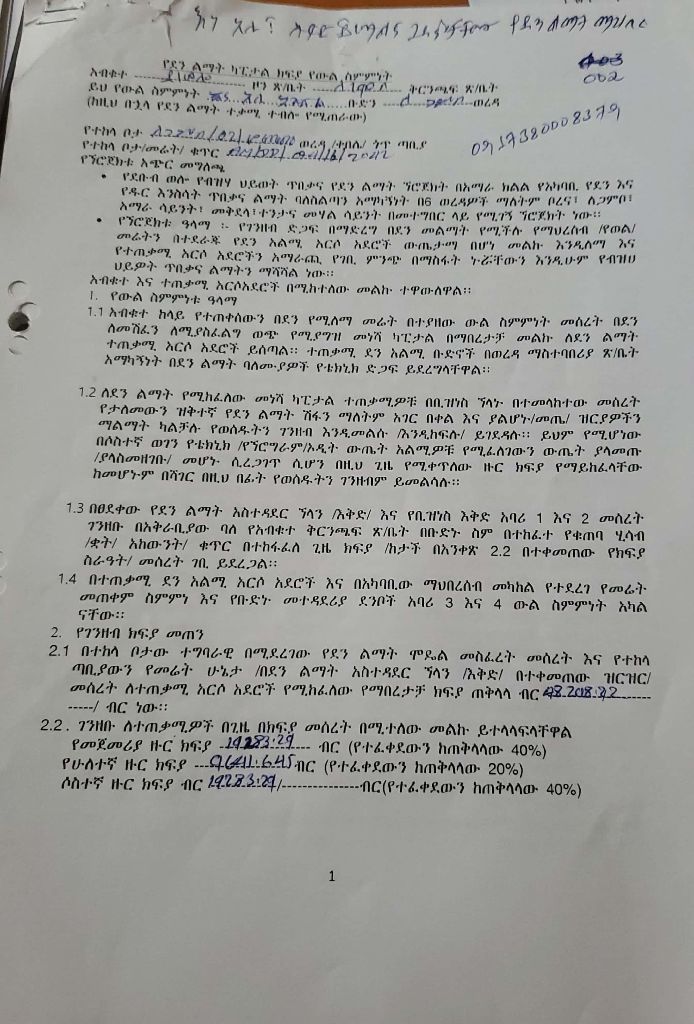 እነ አሊ
የደን ልማት
003
002
የደን ልማት ካፒታል ክፍያ የውል ስምምነት
አብቁተ ደ/ወሎ ዞን ጽ/ቤት ቅርንጫፍ ጽ/ቤት
ይህ የውል ስምምነት እነ አሊ ቡድን ወረዳ
(ከዚህ በኋላ የደን ልማት ተቃሚ ተብሎ የሚጠራው)
0917380008379
የተከላ ቦታ /02/ ወረዳ /ቀበሌ/ ጎጥ ጣቢያ
የተከላ ቦታ/መሬት/ ቁጥር
የኘሮጀክቱ አጭር መግለጫ
• የደቡብ ወሎ የብዝሃ ህይወት ጥበቃና የደን ልማት ኘሮጀክት በአማራ ክልል የአካባቢ የደን እና
የዱር እንስሳት ጥበቃና ልማት ባለስልጣን አማካኝነት በ6 ወረዳዎች ማለትም ቦረና፣ ለጋምቦ፣
አማራ ሳይንት፣ መቅደላ፣ተንታና መሃል ሳይንት በመተግበር ላይ የሚገኝ ኘሮጀክት ነው፡፡
• የኘሮጀክቱ ዓላማ ፡- የገንዘብ ድጋፍ በማድረግ በደን መልማት የሚችሉ የማህረሰብ /የወል/
መሬትን በተደራጁ የደን አልሚ አርሶ አደሮች ውጤታማ በሆነ መልኩ እንዲለማ እና
የተጠቃሚ አርሶ አደሮችን አማራጪ የገቢ ምንጭ በማስፋት ኑሯቸውን እንዲሁም የብዝሀ
ህይዎት ጥበቃና ልማትን ማሻሻል ነው፡፡
አብቁተ እና ተጠቃሚ አርሶአደሮች በሚከተለው መልኩ ተዋውለዋል፡፡
1. የውል ስምምነቱ ዓላማ
1.1 አብቁተ ከላይ የተጠቀሰውን በደን የሚለማ መሬት በተያዘው ውል ስምምነት መሰረት በደን
ለመሸፈን ለሚያስፈልግ ወጭ የሚያግዝ መነሻ ካፒታል በማበረታቻ መልክ ለደን ልማት
ተጠቃሚ አርሶ አደሮች ይሰጣል፡፡ ተጠቃሚ ደን አልሚ ቡድኖች በወረዳ ማስተባበሪያ ጽ/ቤት
አማካኝነት በደን ልማት ባለሙያዎች የቴክኒክ ድጋፍ ይደረግላቸዋል፡፡
1.2 ለደን ልማት የሚከፈለው መነሻ ካፒታል ተጠቃሚዎቹ በቢዝነስ ኘላኑ በተመላከተው መሰረት
የታለመውን ዝቅተኛ የደን ልማት ሽፋን ማለትም አገር በቀል እና ያልሆኑ/መጤ/ ዝርያዎችን
ማልማት ካልቻሉ የወሰዱትን ገንዘብ እንዲመልሱ /እንዲከፍሉ/ ይገደዳሉ፡፡ ይህም የሚሆነው
በሶስተኛ ወገን የቴክኒክ /የኘሮግራም/ኦዲት ውጤት አልሚዎቹ የሚፈለገውን ውጤት ያላመጡ
/ያላስመዘገቡ/ መሆኑ ሲረጋገጥ ሲሆን በዚህ ጊዜ የሚቀጥለው ዙር ክፍያ የማይከፈላቸው
ከመሆኑም በሻገር በዚህ በፊት የወሰዱትን ገንዘብም ይመልሳሉ፡፡
1.3 በፀደቀው የደን ልማት አስተዳደር ኘላን /እቅድ/ እና የቢዝነስ እቅድ አባሪ 1 እና 2 መሰረት
ገንዘቡ በአቅራቢያው ባለ የአብቁተ ቅርንጫፍ ጽ/ቤት በቡድኑ ስም በተከፈተ የቁጠባ ሂሳብ
/ቋት/ አካውንት/ ቁጥር በተከፋፈለ ጊዜ ክፍያ /ከታች በአንቀጽ 2.2 በተቀመጠው የክፍያ
ስራዓት/ መሰረት ገቢ ይደረጋል፡፡
1.4 በተጠቃሚ ደን አልሚ አርሶ አደሮች እና በአካባቢው ማህበረሰብ መካከል የተደረገ የመሬት
መጠቀም ስምምነነ እና የቡድኑ መተዳደሪያ ደንቦች አባሪ 3 እና 4 ውል ስምምነት አካል
ናቸው፡፡
2. የገንዘብ ክፍያ መጠን
2.1 በተከላ ቦታው ተግባራዊ በሚደረገው የደን ልማት ሞዴል መስፈረት መሰረት እና የተከላ
ጣቢያውን የመሬት ሁኔታ /በደን ልማት አስተዳደር ኘላን /እቅድ/ በተቀመጠው ዝርዝር/
መሰረት ለተጠቃሚ አርሶ አደሮች የሚከፈለው የማበረታቻ ክፍያ ጠቅላላ ብር 48.208.22---------
-----/ ብር ነው፡፡
2.2. ገንዘቡ ለተጠቃሚዎች በጊዜ በክፍያ መሰረት በሚተለው መልኩ ይተላላፍላቸዋል
የመጀመሪያ ዙር ክፍያ ..19283.29... ---- ብር (የተፈቀደውን ከጠቅላላው 40%)
የሁለተኛ ዙር ክፍያ ---9641.645 ብር (የተፈቀደውን ከጠቅላላው 20%)
ሶስተኛ ዙር ክፍያ ብር 19283.29/----------------ብር(የተፈቀደውን ከጠቅላላው 40%)
1